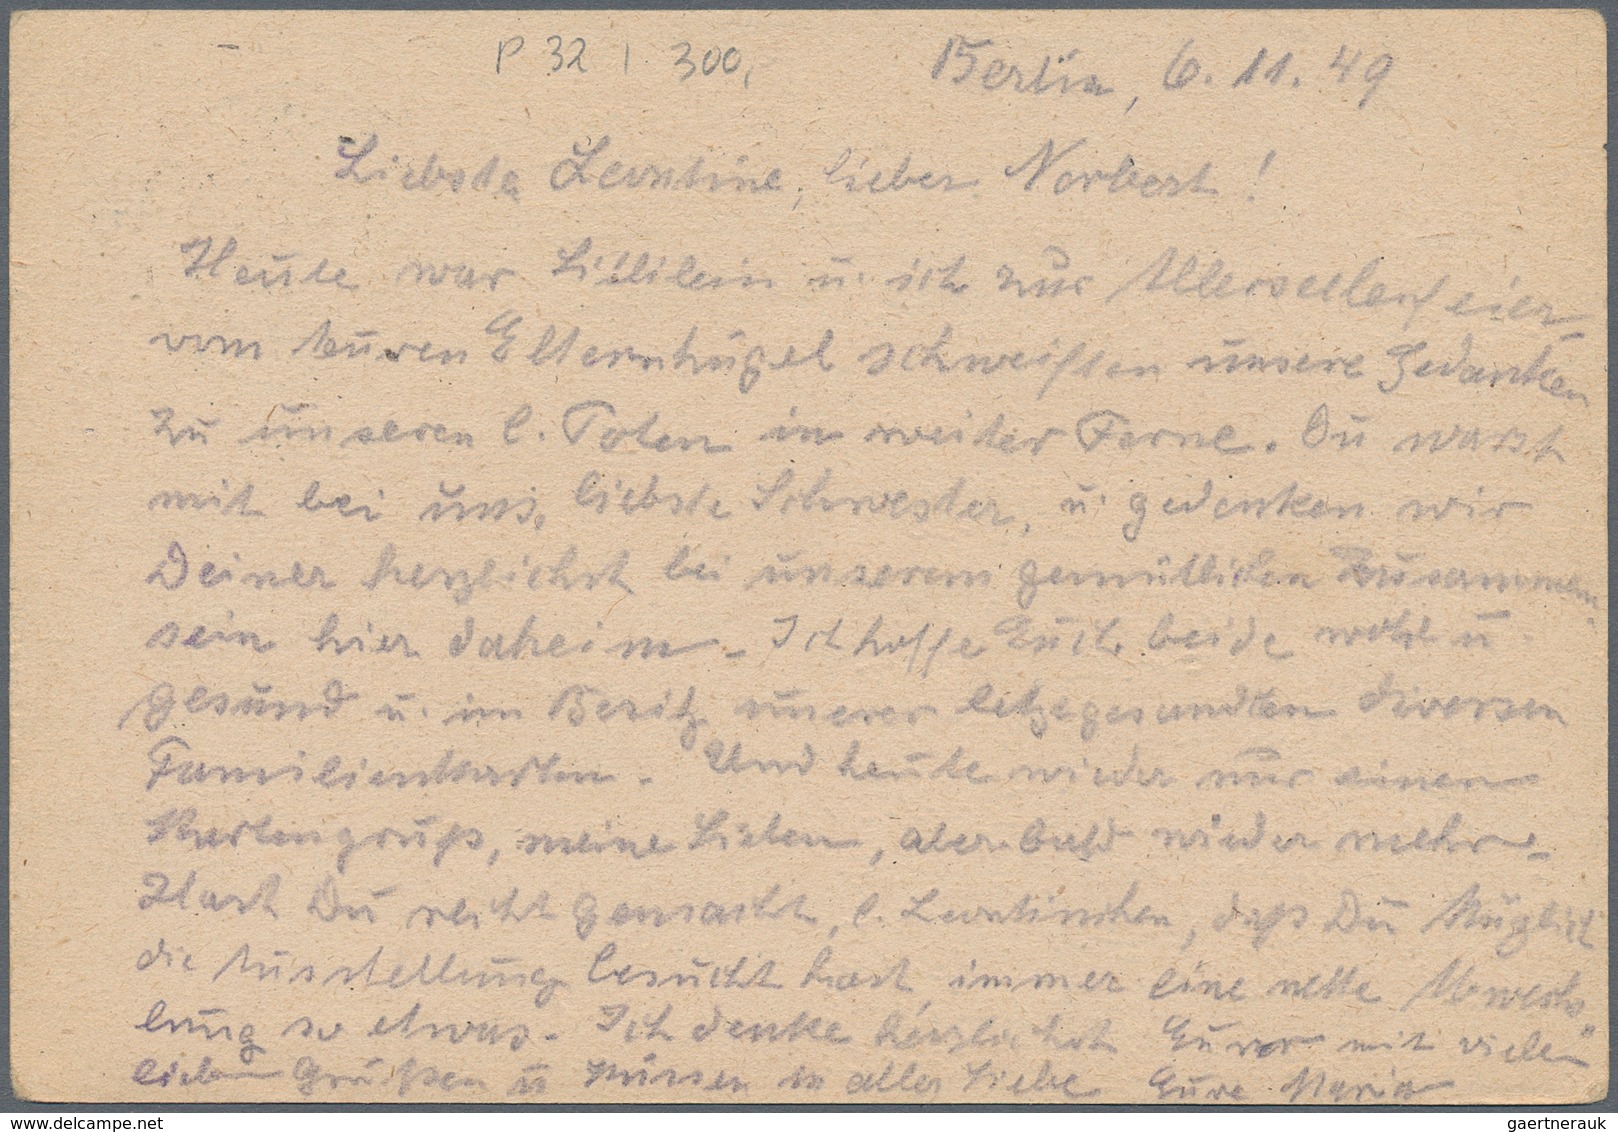 P 32 I 300,
Berlin, 6. 11. 49
Liebste Leontine, lieber Norbert!
Heute war Lililein u. ich zur Allerseelenfeier
vom teuren Elternhügel schweiften unsere Gedanken
zu unseren l. Toten in weiter Ferne. Du warst
mit bei uns, liebste Schwester, u. gedenken wir
Deiner herzlichst bei unserem gemütlichen Zusammen
sein hier daheim - Ich hoffe Euch beide wohl u.
gesund u. im Besitz unserer letztgesandten diversen
Familienkarten. Und heute wieder nur einen
Kartengruß, meine Lieben, aber bald wieder mehr -
Hast Du recht gemacht, l. Leontinchen, daß Du
die Ausstellung besucht hast, immer eine nette Abwechs"
lung so etwas. Ich denke herzlichst Eurer mit vielen
lieben Grüßen u Küssen in aller Liebe Eure Maria
gaertnerauk